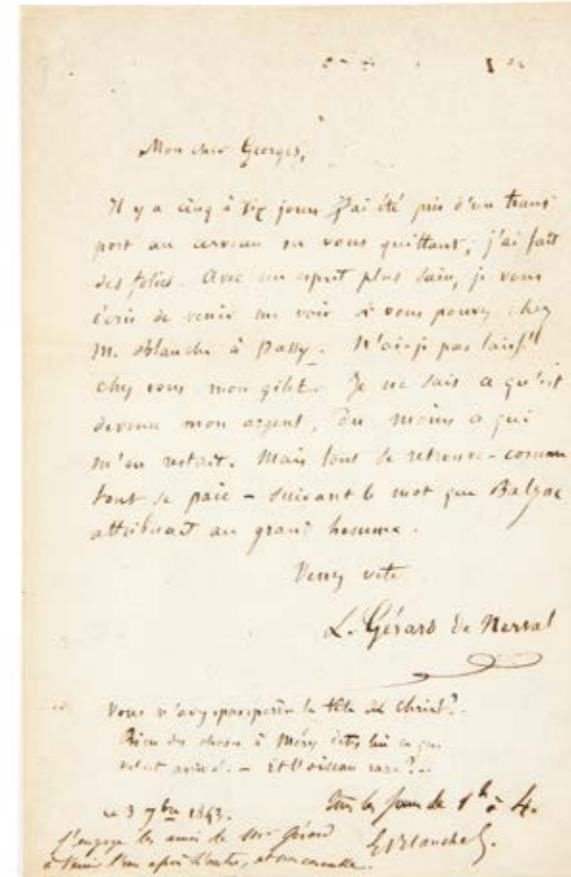 Mon cher Georges,
Il y a cinq à six jours j'ai été pris d'un trans
port au cerveau en vous quittant; j'ai fait
des folies. Avec un esprit plus sain, je vous
écris de venir me voir si vous pouvez chez
M. Blanche à Passy. N'ai-je pas laissé
chez vous mon gilet. Je ne sais ce qu'est
devenu mon argent, du moins ce qui
m'en restait. Mais tout se retrouve - comme
tout se paie - suivant le mot que Balzac
attribuait au grand homme.
Venez vite
L. Gérard de Nerval
Vous n'avez pas perdu la tête de Christ?
Bien des choses à Méry dites lui ce qui
m'est arrivé. - Et l'oiseau rare?..
ce 3 7bre 1853. Tous les jours de 1h à 4.
J'engage les amis de Mr Gérard
à venir l'un après l'autre, et
E Blanche